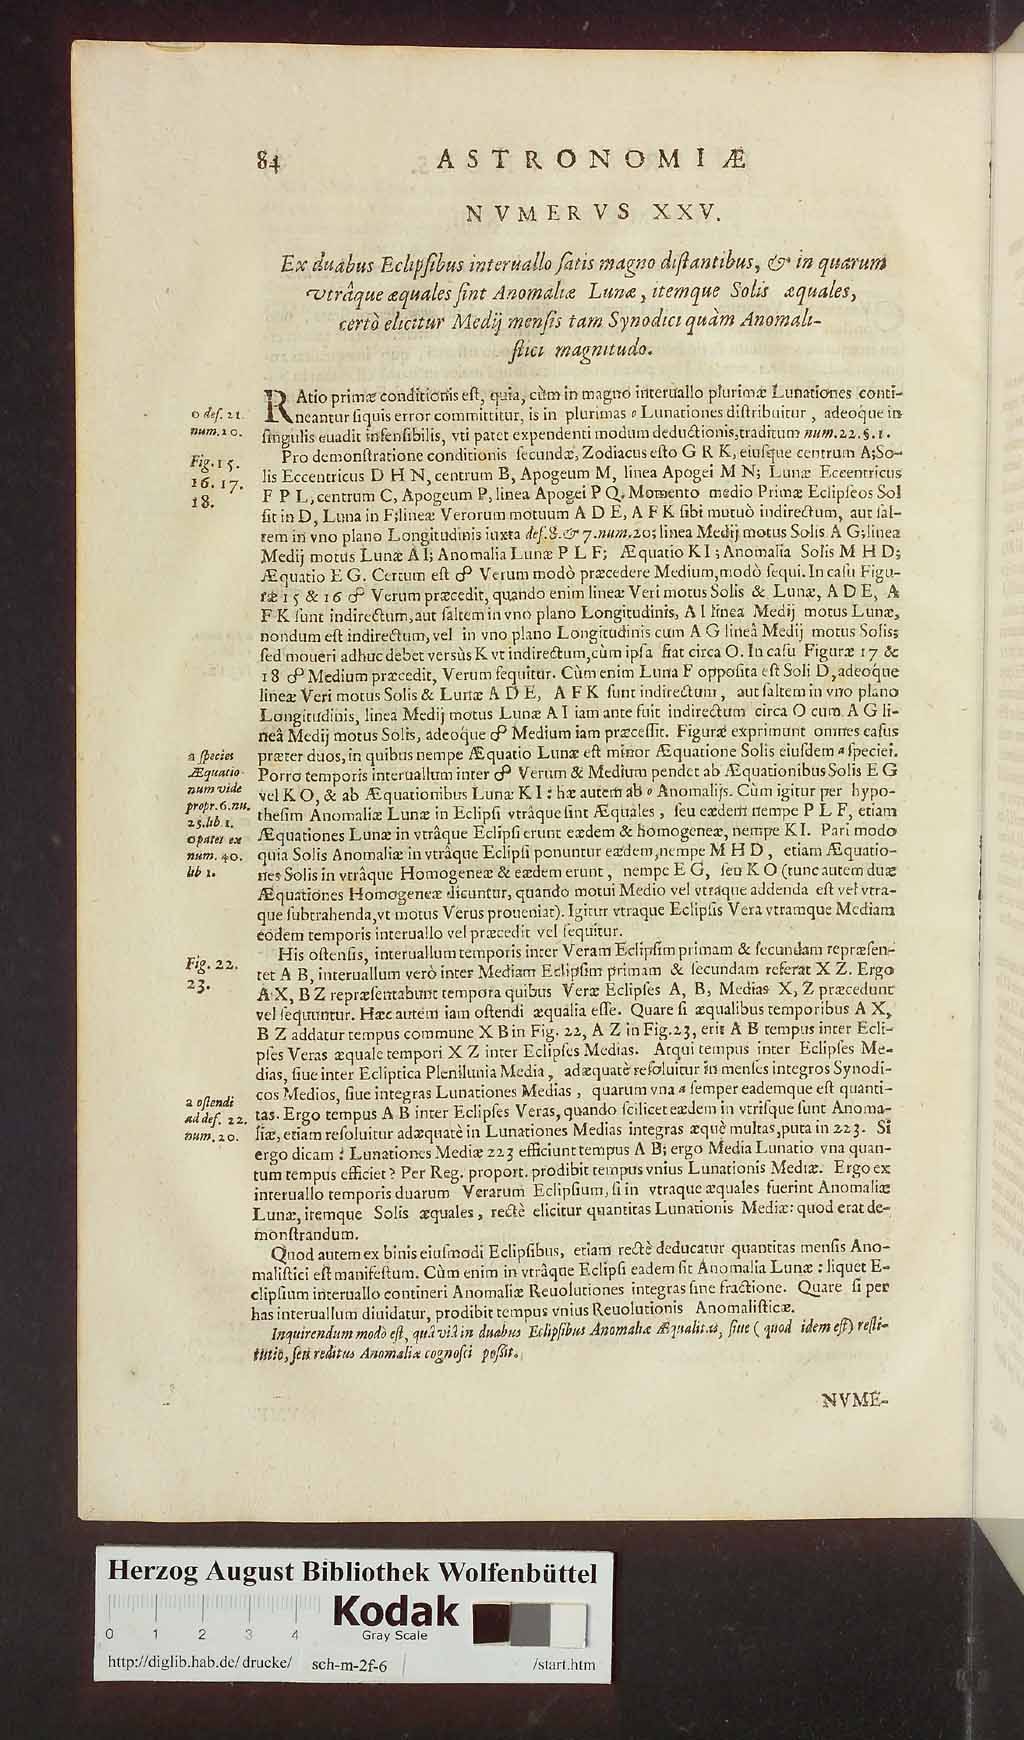 84 ASTRONOMIÆ
NVMERVS XXV.
Ex duabus Eclipſibus interuallo ſatis magno diſtantibus, & in quarum
vtrâque æquales ſint Anomaliæ Lunæ, itemque Solis æquales,
certò elicitur Medij menſis tam Synodici quàm Anomali-
ſtici magnitudo.
RAtio primæ conditionis eſt, quia, cùm in magno interuallo plurimæ Lunationes conti-
neantur ſiquis error committitur, is in plurimas o Lunationes diſtribuitur, adeoque in
ſingulis euadit inſenſibilis, vti patet expendenti modum deductionis, traditum num. 22. §. 1.
o def. 21.
num. 20.
Pro demonſtratione conditionis ſecundæ, Zodiacus eſto G R K, eiuſque centrum A; So-
lis Eccentricus D H N, centrum B, Apogeum M, linea Apogei M N; Lunæ Eccentricus
F P L, centrum C, Apogeum P, linea Apogei P Q. Momento medio Primæ Eclipſeos Sol
ſit in D, Luna in F; lineæ Verorum motuum A D E, A F K ſibi mutuò indirectum, aut ſal-
tem in vno plano Longitudinis iuxta def. 8. & 7. num. 20; linea Medij motus Solis A G; linea
Medij motus Lunæ A I; Anomalia Lunæ P L F; Æquatio K I; Anomalia Solis M H D;
Æquatio E G. Certum eſt ☍ Verum modò præcedere Medium, modò ſequi. In caſu Figu-
ræ 15 & 16 ☍ Verum præcedit, quando enim lineæ Veri motus Solis & Lunæ, A D E, A
F K ſunt indirectum, aut ſaltem in vno plano Longitudinis, A I linea Medij motus Lunæ,
nondum eſt indirectum, vel in vno plano Longitudinis cum A G lineâ Medij motus Solis;
ſed moueri adhuc debet versùs K vt indirectum, cùm ipſa fiat circa O. In caſu Figuræ 17 &
18 ☍ Medium præcedit, Verum ſequitur. Cùm enim Luna F oppoſita eſt Soli D, adeoque
lineæ Veri motus Solis & Lunæ A D E, A F K ſunt indirectum, aut ſaltem in vno plano
Longitudinis, linea Medij motus Lunæ A I iam ante fuit indirectum circa O cum A G li-
neâ Medij motus Solis, adeoque ☍ Medium iam præceſſit. Figuræ exprimunt omnes caſus
præter duos, in quibus nempe Æquatio Lunæ eſt minor Æquatione Solis eiuſdem a ſpeciei.
Porro temporis interuallum inter ☍ Verum & Medium pendet ab Æquationibus Solis E G
vel K O, & ab Æquationibus Lunæ K I: hæ autem ab o Anomalijs. Cùm igitur per hypo-
theſim Anomaliæ Lunæ in Eclipſi vtrâque ſint Æquales, ſeu eædem nempe P L F, etiam
Æquationes Lunæ in vtrâque Eclipſi erunt eædem & homogeneæ, nempe KI. Pari modo
quia Solis Anomaliæ in vtrâque Eclipſi ponuntur eædem, nempe M H D, etiam Æquatio-
nes Solis in vtrâque Homogeneæ & eædem erunt, nempe E G, ſeu K O (tunc autem duæ
Æquationes Homogeneæ dicuntur, quando motui Medio vel vtraque addenda eſt vel vtra-
que ſubtrahenda, vt motus Verus proueniat). Igitur vtraque Eclipſis Vera vtramque Mediam
eodem temporis interuallo vel præcedit vel ſequitur.
Fig. 15.
16. 17.
18.
a ſpecies
Æquatio-
num vide
propr. 6. nu.
25. lib. 1.
o patet ex
num. 40.
lib 1.
His oſtenſis, interuallum temporis inter Veram Eclipſim primam & ſecundam repræſen-
tet A B, interuallum verò inter Mediam Eclipſim primam & ſecundam referat X Z. Ergo
A X, B Z repræſentabunt tempora quibus Veræ Eclipſes A, B, Medias X, Z præcedunt
vel ſequuntur. Hæc autem iam oſtendi æqualia eſſe. Quare ſi æqualibus temporibus A X,
B Z addatur tempus commune X B in Fig. 22, A Z in Fig. 23, erit A B tempus inter Ecli-
pſes Veras æquale tempori X Z inter Eclipſes Medias. Atqui tempus inter Eclipſes Me-
dias, ſiue inter Ecliptica Plenilunia Media, adæquatè reſoluitur in menſes integros Synodi-
cos Medios, ſiue integras Lunationes Medias, quarum vna a ſemper eademque eſt quanti-
tas. Ergo tempus A B inter Eclipſes Veras, quando ſcilicet eædem in vtriſque ſunt Anoma-
liæ, etiam reſoluitur adæquatè in Lunationes Medias integras æquè multas, puta in 223. Si
ergo dicam: Lunationes Mediæ 223 efficiunt tempus A B; ergo Media Lunatio vna quan-
tum tempus efficiet? Per Reg. proport. prodibit tempus vnius Lunationis Mediæ. Ergo ex
interuallo temporis duarum Verarum Eclipſium, ſi in vtraque æquales fuerint Anomaliæ
Lunæ, itemque Solis æquales, rectè elicitur quantitas Lunationis Mediæ: quod erat de-
monſtrandum.
Fig. 22.
23.
a oſtendi
ad def. 22.
num. 20.
Quod autem ex binis eiuſmodi Eclipſibus, etiam rectè deducatur quantitas menſis Ano-
maliſtici eſt manifeſtum. Cùm enim in vtrâque Eclipſi eadem ſit Anomalia Lunæ: liquet E-
clipſium interuallo contineri Anomaliæ Reuolutiones integras ſine fractione. Quare ſi per
has interuallum diuidatur, prodibit tempus vnius Reuolutionis Anomaliſticæ.
Inquirendum modò eſt, quâ viâ in duabus Eclipſibus Anomaliæ Æqualitas, ſiue (quod idem eſt) reſti-
tutio, ſeu reditus Anomaliæ cognoſci poſſit.
NVME-
Herzog August Bibliothek Wolfenbüttel
Kodak
Gray Scale
0 1 2 3 4
http://diglib.hab.de/drucke/ sch-m-2f-6 /start.htm